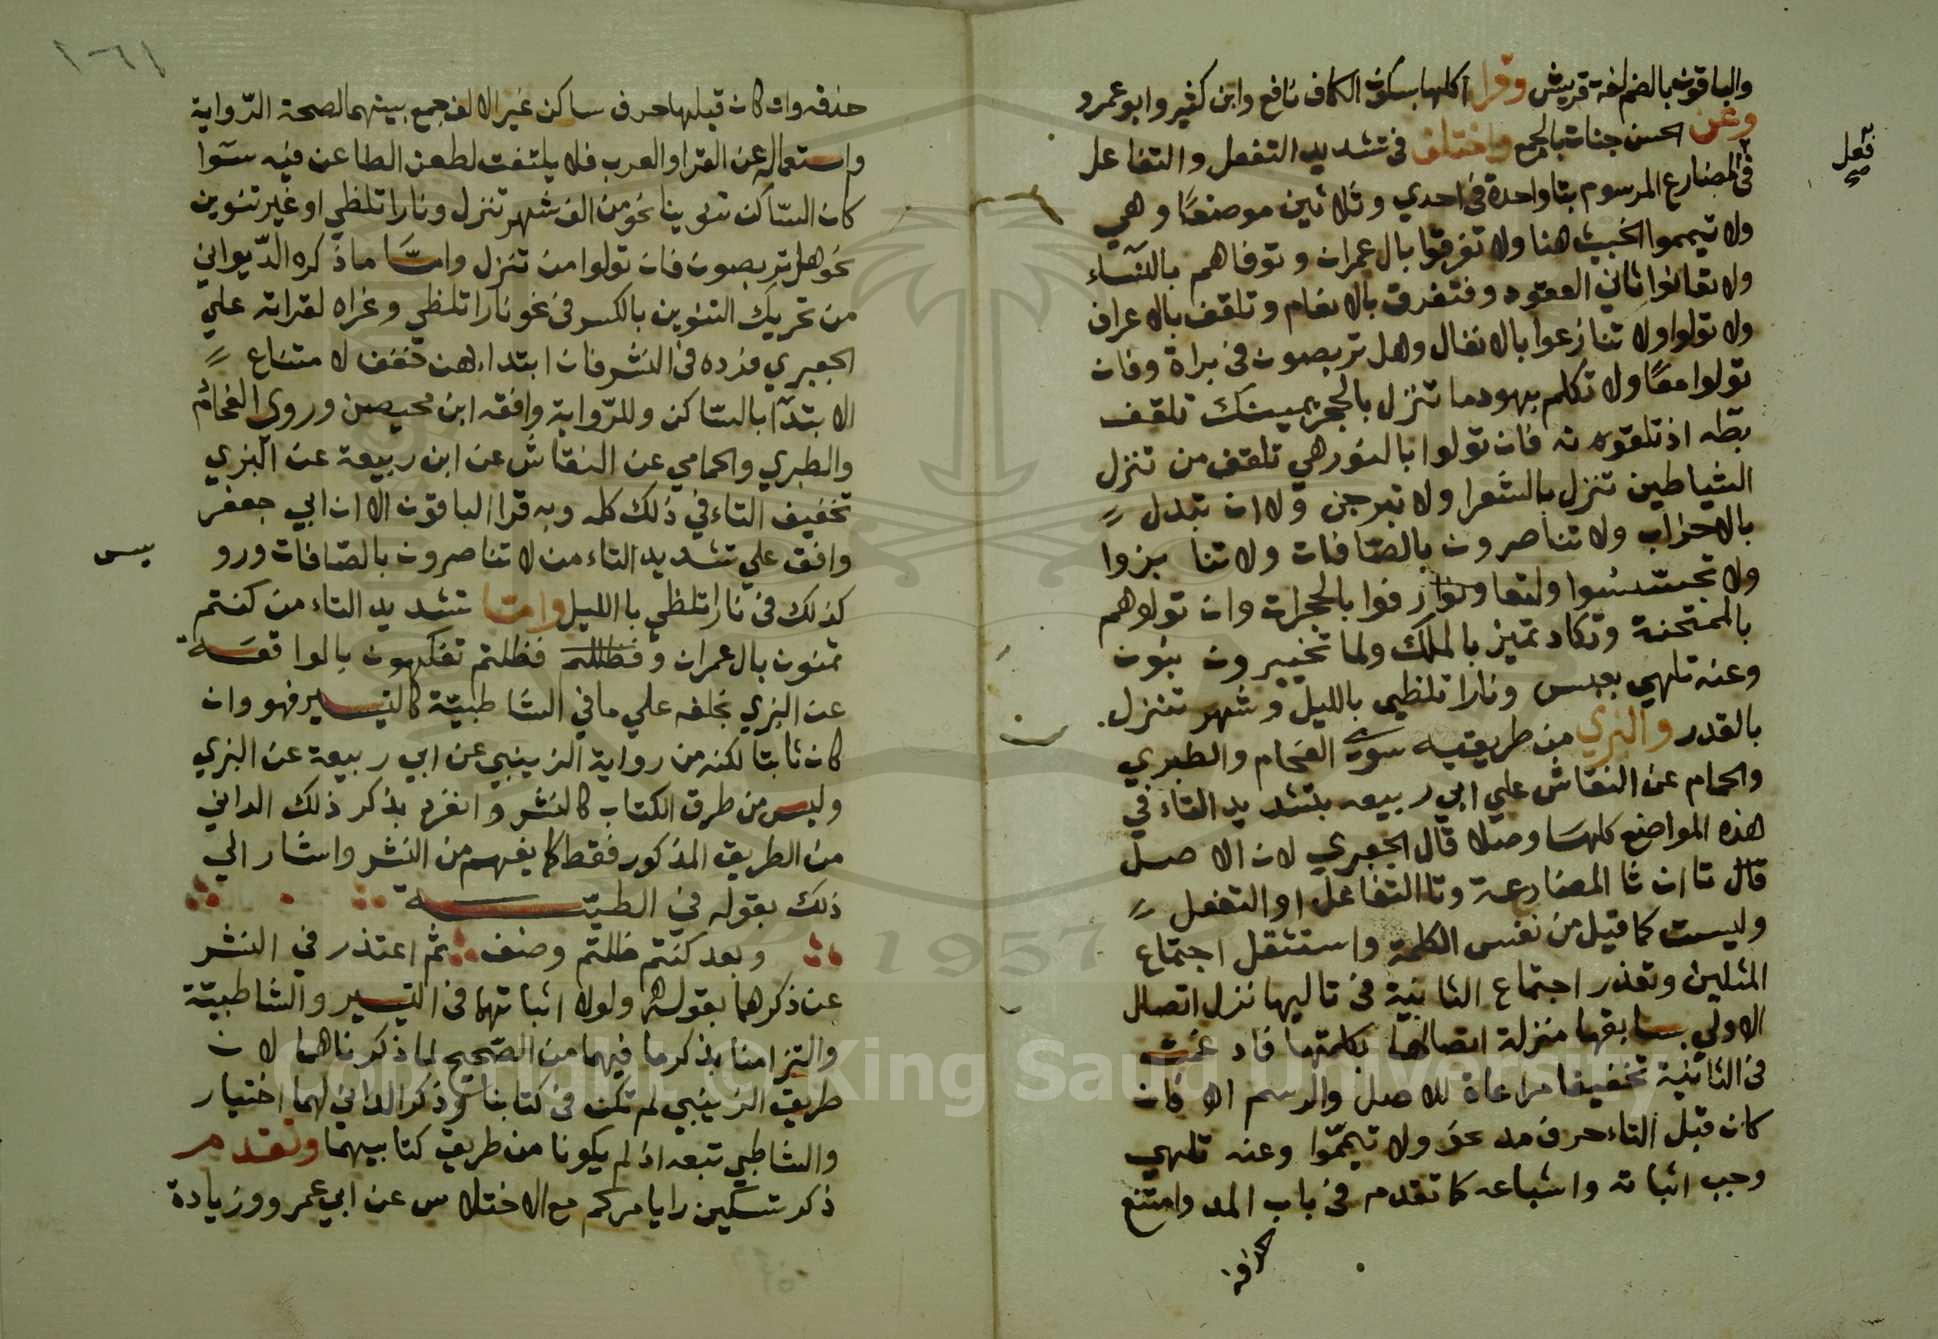 والباقون بالضم لغة قريش وقرا اكلها بسكون الكاف نافع وابن كثير وابو عمرو
وعن الحسن جنات بالجمع واختلف في تشديد التفعل والتفاعل
في المضارع المرسوم بتا واحدة في احدي وثلاثين موضعا وهي
ولا تيمموا الخبيث هنا ولا تفرقوا بال عمران وتوفاهم بالنساء
ولا تعاونوا ثاني العقود وفتفرق بالانعام وتلقف بالاعراف
ولا تولوا ولا تنازعوا بالانفال وهل تربصون في براة وفان
تولوا معا ولا تكلم بهود ما تنزل بالحجر يمينك تلقف
بطه اذ تلقونه فان تولوا بالنور هي تلقف من تنزل
الشياطين تنزل بالشعرا ولا تبرجن ولا ان تبدل
بالاحزاب ولا تناصرون بالصافات ولا تنابزوا
ولا تجسسوا ولتعارفوا بالحجرات وان تولوهم
بالممتحنة وتكاد تميز بالملك ولما تخيرون بنون
وعنه تلهي بعبس ونارا تلظي بالليل وشهر تنزل
بالقدر والبزي من طريقيه سوي الفحام والطبري
والحمام عن النقاش علي ابي ربيعه بتشديد التاء في
هذه المواضع كلها وصلا قال الجعبري لان الاصل
قال تاان تا المضارعة وتا التفاعل او التفعل
وليست كما قيل من نفس الكلمة واستثقل اجتماع
المثلين وتعذر اجتماع الثانية في تاليها نزل اتصال
الاولي بسابقها منزلة اتصالها بكلمتها فادغمت
في الثانية تخفيفا مراعاة للاصل والرسم الا فان
كان قبل التاء حرف مد نحو ولا تيمموا وعنه تلهي
وجب اثباته واشباعه كما تقدم في باب المد وامتنع
حذفه
تفعل
صح
حذفه وان كان قبلها حرف ساكن غير الالف جمع بينهما لصحة الرواية
واستعماله عن القرا والعرب فلا يلتفت لطعن الطاعن فيه سوا
كان الساكن تنوينا نحو من الف شهر تنزل ونارا تلظي او غير تنوين
نحو هل تربصون فان تولوا من تنزل واما ما ذكره الديواني
من تحريك التنوين بالكسر في نحو نارا تلظي وعزاه لقراته علي
الجعبري فرده في النشر فان ابتدا بهن خفف لامتناع
الابتدا بالساكن وللرواية وافقه ابن محيصن وروي الفحام
والطبري والحمامي عن النقاش عن ابن ربيعة عن البزي
تخفيف التاء في ذلك كله وبه قرا الباقون الا ان ابي جعفر
وافق علي تشديد التاء من لا تناصرون بالصافات ورو
يس
كذلك في نارا تلظي باالليل واما تشديد التاء من كنتم
تمنون بال عمران وفظللم فظلتم تفكهون بالواقعة
عن البزي بخلفه علي ما في الشاطبية كالتيسير فهو وان
كان ثابتا لكنه من رواية الزينبي عن ابي ربيعة عن البزي
وليس من طرق الكتاب كالنشر وانفرد بذكر ذلك الداني
من الطريق المذكور فقط كما يفهم من النشر واشار الي
ذلك بقوله في الطيبة
وبعد كنتم ظلتم وصف ثم اعتذر في النشر
عن ذكرهما بقوله ولولا اثباتهما في التيسير والشاطبية
والتزامنا بذكر ما فيهما من الصحيح لما ذكرناهما لان
طريق الزينبي لم تكن في كتابنا وذكر الداني لهما اختيار
والشاطبي تبعه اذ لم يكونا من طريق كتابيهما وتقدم
ذكر تسكين را يامركم مع الاختلاس عن ابي عمرو وزيادة
1957
Copyright © King Saud University